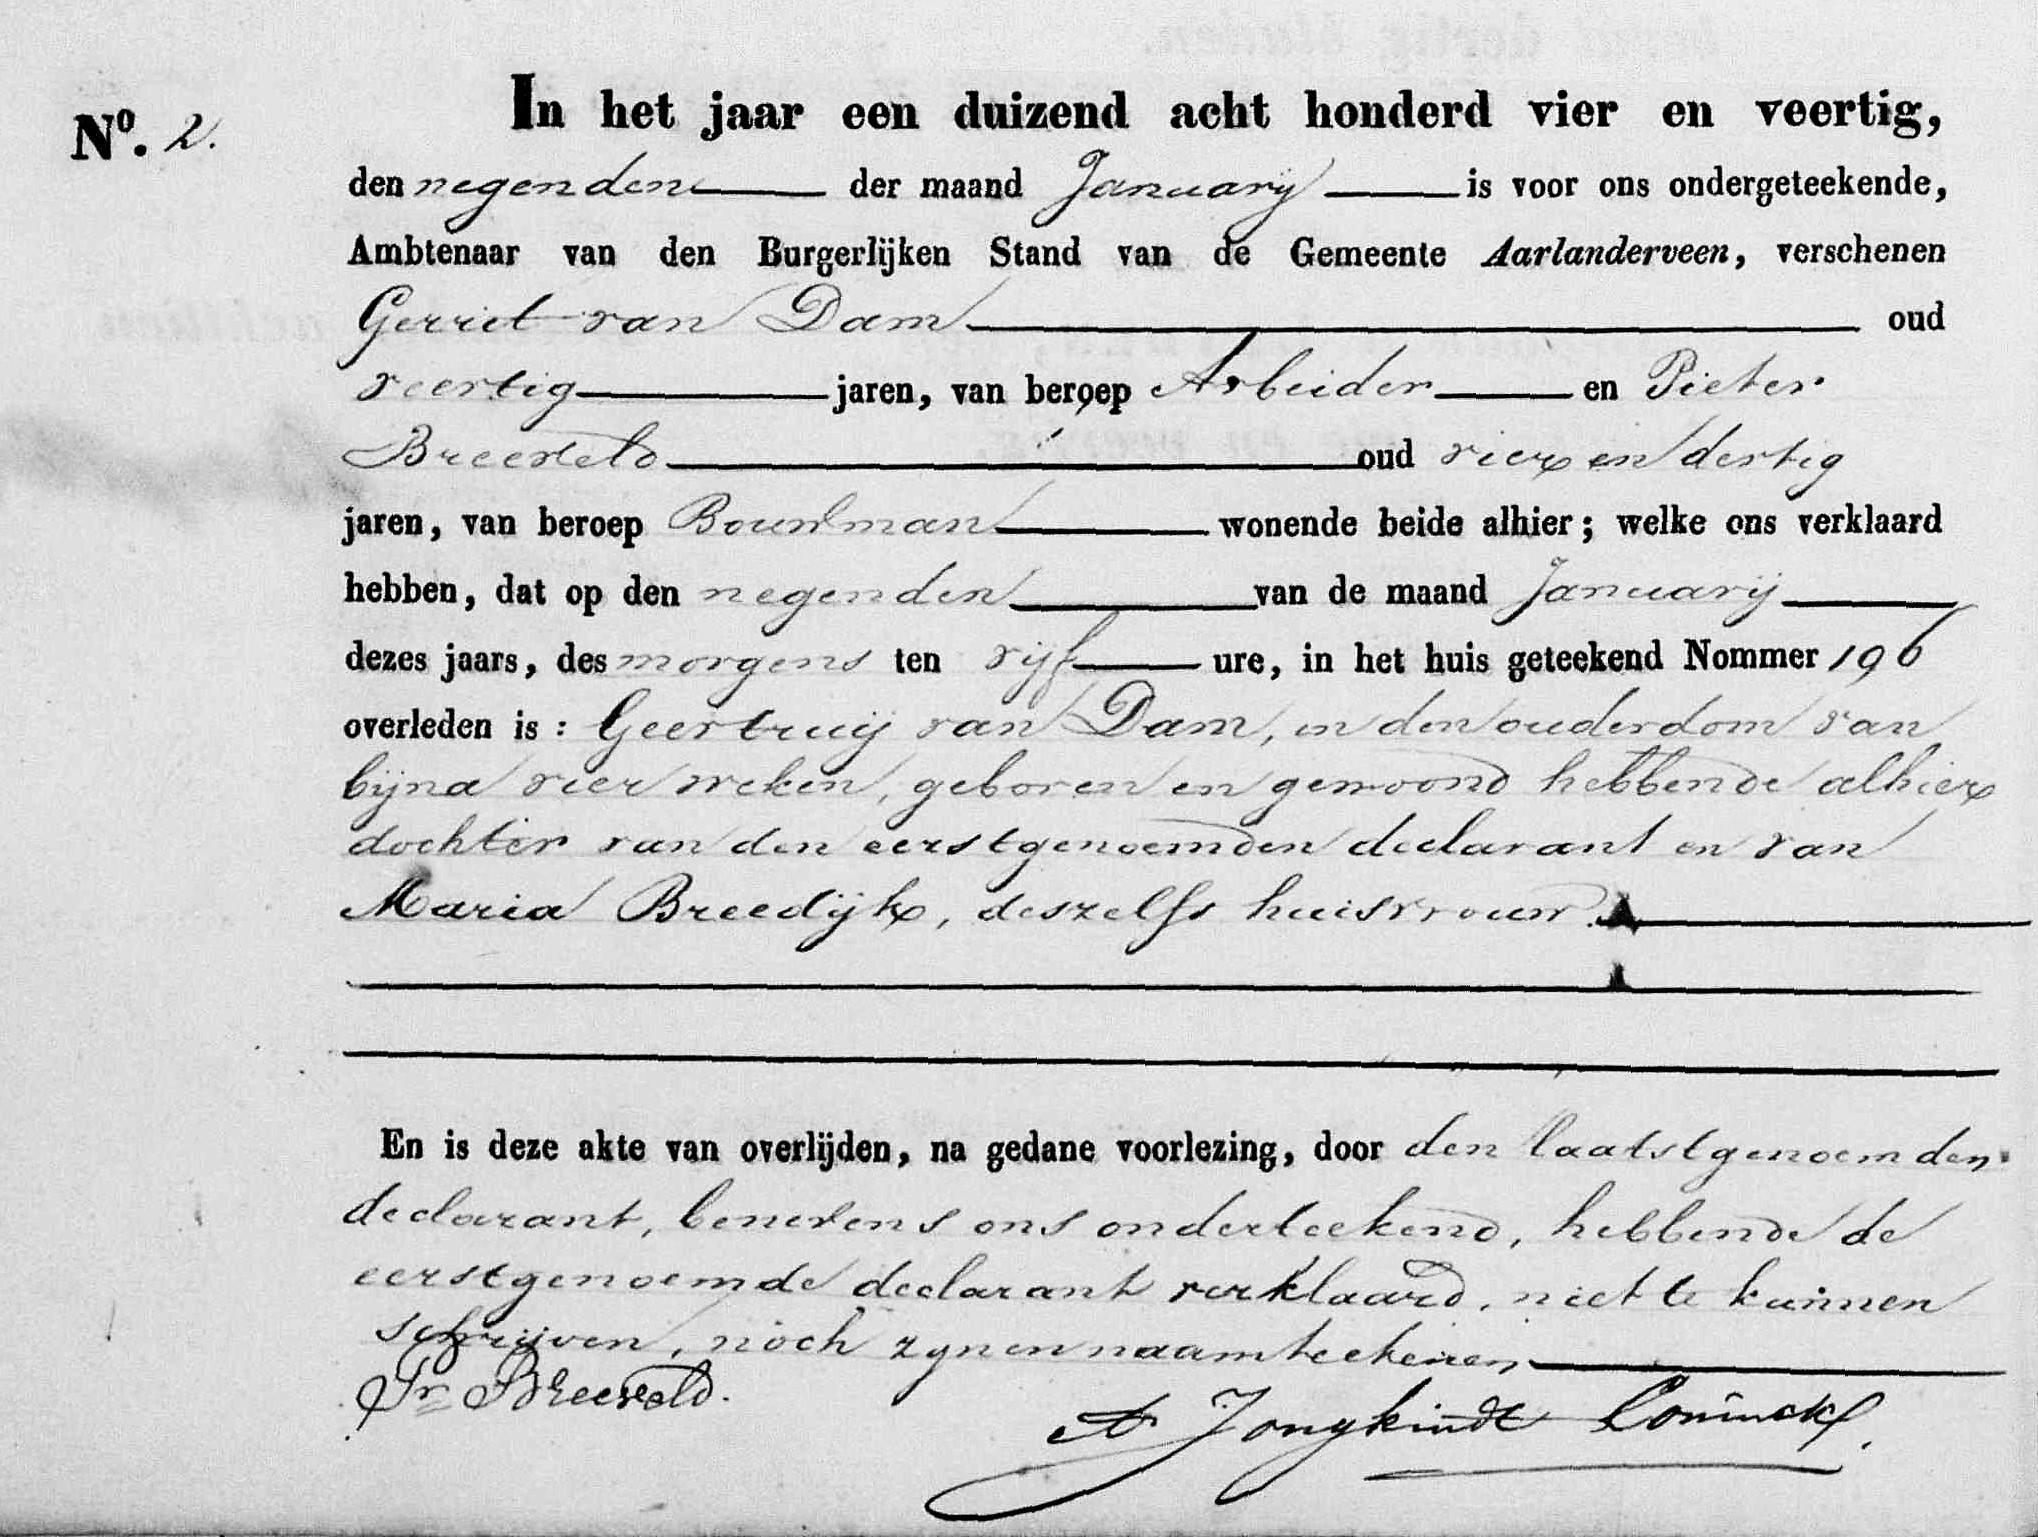 No. 2.
In het jaar een duizend acht honderd vier en veertig,
den negenden der maand Januarij is voor ons ondergeteekende,
Ambtenaar van den Burgerlijken Stand van de Gemeente Aarlanderveen, verschenen
Gerrit van Dam oud
veertig jaren, van beroep Arbeider en Pieter
Breeveld oud vier en dertig
jaren, van beroep Bouwman wonende beide alhier; welke ons verklaard
hebben, dat op den negenden van de maand Januarij
dezes jaars, des morgens ten vijf ure, in het huis geteekend Nommer 196
overleden is: Geertruij van Dam, in den ouderdom van
bijna vier weken, geboren en gewoond hebbende alhier
dochter van den eerstgenoemden declarant en van
Maria Breedijk, deszelfs huisvrouw.
En is deze akte van overlijden, na gedane voorlezing, door den laatstgenoemden
declarant, benevens ons onderteekend, hebbende de
eerstgenoemde declarant verklaard, niet te kunnen
schrijven, noch zynen naam teekenen,
Pr Breeveld.
A Jongkindt Coninck